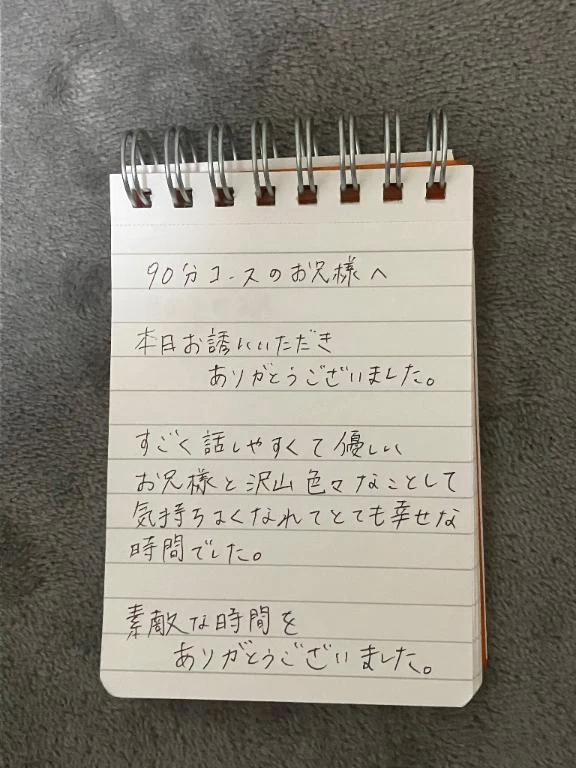 90分コースのお兄様へ
本日お誘いいただき
ありがとうございました。
すごく話しやすくて優しい
お兄様と沢山色々なことして
気持ちよくなれてとても幸せな
時間でした。
素敵な時間を
ありがとうございました。